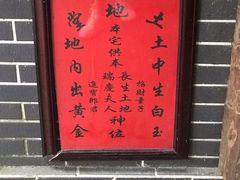 土中生白玉
招財童子
地
本宅供奉
長生土地
瑞慶夫人
神位
進寶郎君
地內出黃金